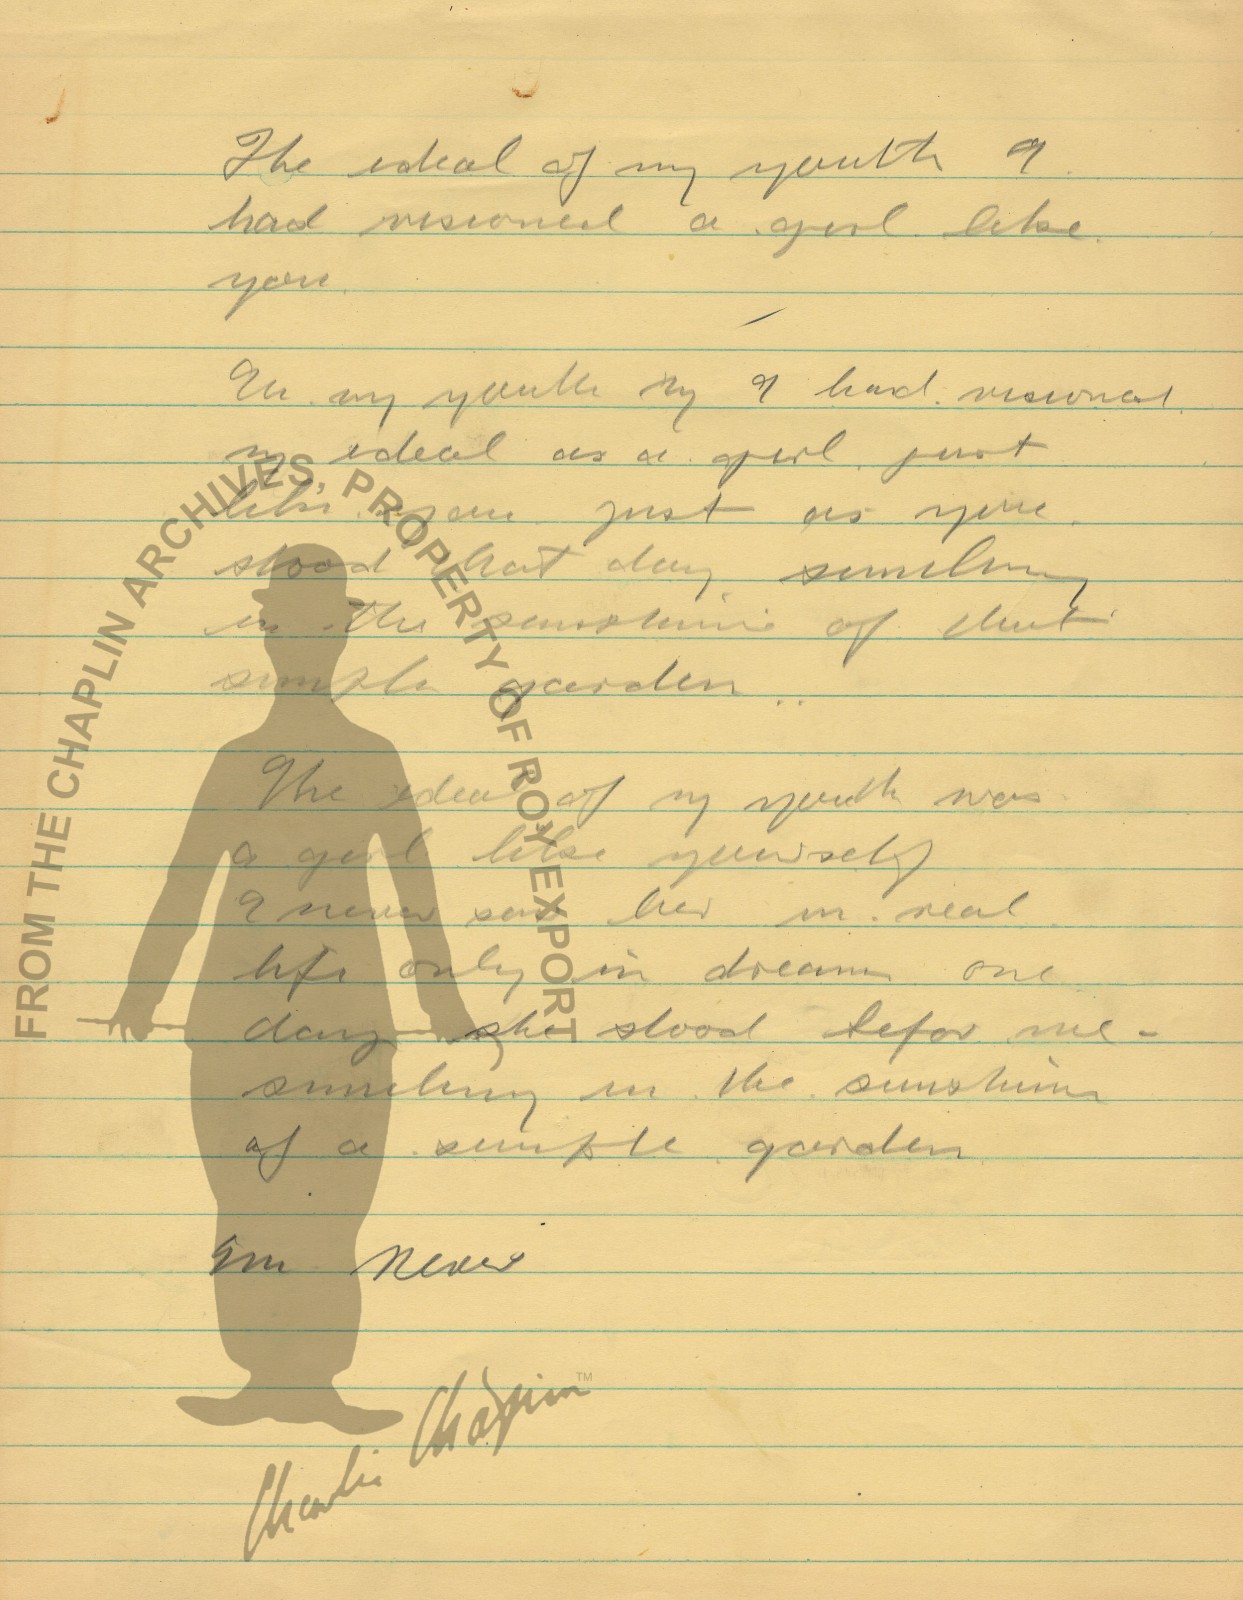 The ideal of my youth I
had visioned a girl like
you.
In my youth my I had visioned
my ideal as a girl just
like you just as you
stood that day smiling
in the sunshine of that
simple garden
The ideal of my youth was
a girl like yourself
I never saw her in real
life only in dreams one
day she stood befor me -
smiling in the sunshine
of a simple garden
never
FROM THE CHAPLIN ARCHIVES, PROPERTY OF ROY EXPORT
Charlie Chaplin™